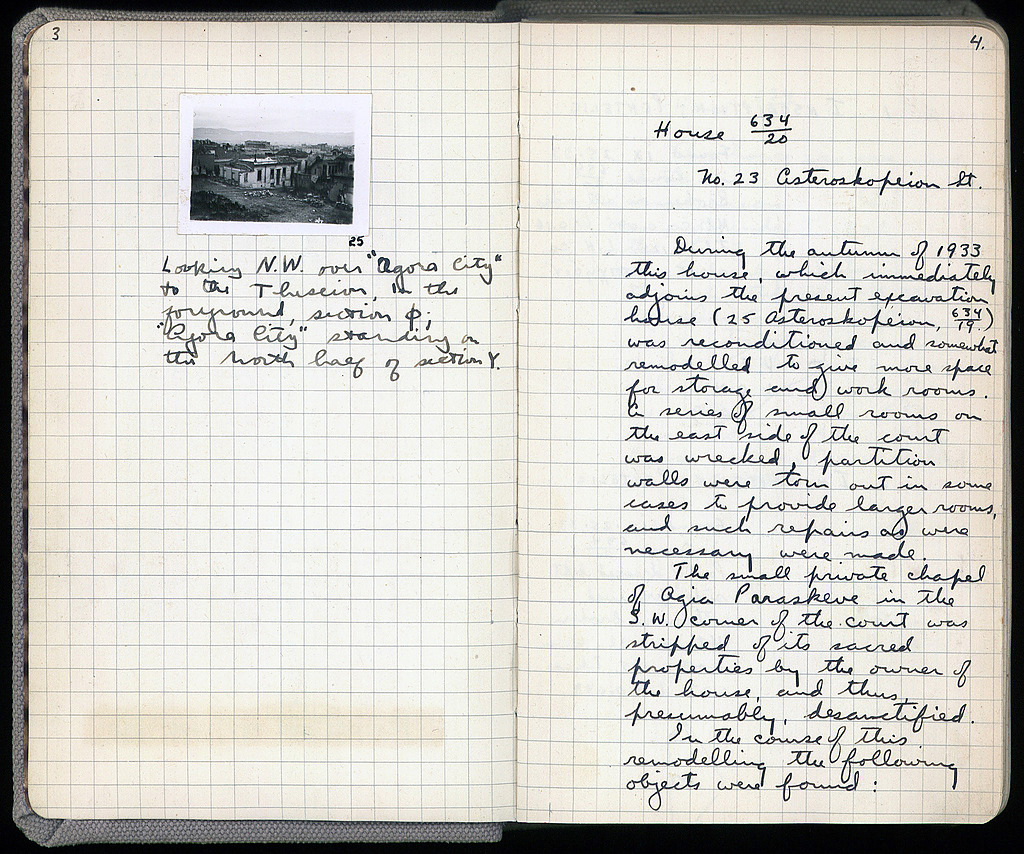 3
25
Looking N.W. over "Agora City"
to the Theseion, in the
foreground, section Φ;
"Agora City" standing on
the north half of section Y.
4.
House 634/20
No. 23 Asteroskopeion St.
During the autumn of 1933
this house, which immediately
adjoins the present excavation
house (25 Asteroskopeion, 634/19)
was reconditioned and somewhat
remodelled to give more space
for storage and work rooms.
A series of small rooms on
the east side of the court
was wrecked, partition
walls were torn out in some
cases to provide larger rooms,
and such repairs as were
necessary were made.
The small private chapel
of Agia Paraskeve in the
S.W. corner of the court was
stripped of its sacred
properties by the owner of
the house, and thus,
presumably, desanctified.
In the course of this
remodelling the following
objects were found: